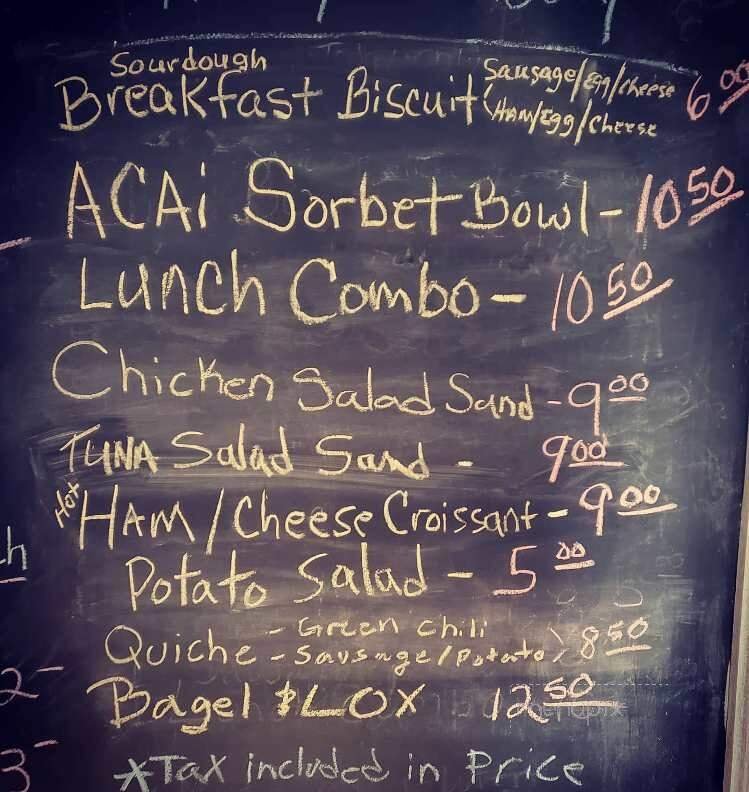 Sourdough
Breakfast Biscuit (Sausage/Egg/cheese 6 00
HAM/Egg/Cheese
ACAi Sorbet Bowl - 10 50
Lunch Combo - 10 50
Chicken Salad Sand - 9 00
TUNA Salad Sand - 9 00
Hot HAM / Cheese Croissant - 9 00
Potato Salad - 5 00
Quiche - Green chili
- Sausage/Potato) 8 50
Bagel & LOX 12 50
*Tax included in Price